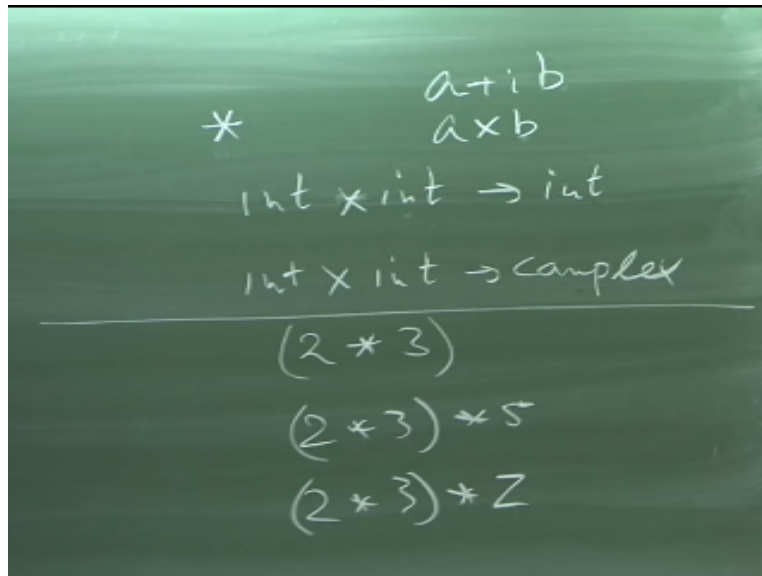 a+ib
* a×b
int × int → int
int × int → complex
(2 * 3)
(2 * 3) * 5
(2 * 3) * Z